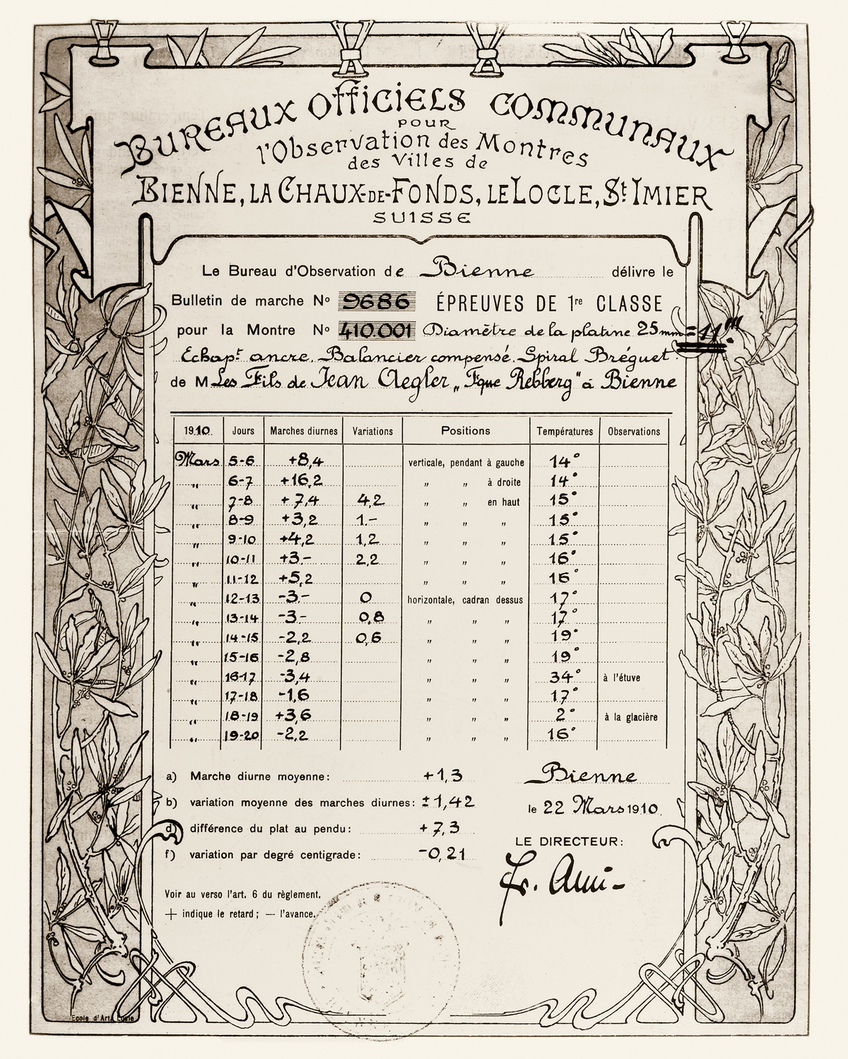 BUREAUX OFFICIELS COMMUNAUX
POUR
l'Observation des Montres
des Villes de
BIENNE, LA CHAUX-DE-FONDS, LE LOCLE, St IMIER
SUISSE
Le Bureau d'Observation de Bienne délivre le
Bulletin de marche No 9686 ÉPREUVES DE 1re CLASSE
pour la Montre No 410.001 Diamètre de la platine 25mm = 11'''
Echapt ancre. Balancier compensé. Spiral Bréguet
de M Les Fils de Jean Aegler „Fque Rebberg" à Bienne
1910. Jours Marches diurnes Variations Positions Températures Observations
Mars 5-6 +8,4 verticale, pendant à gauche 14°
„ 6-7 +16,2 „ „ à droite 14°
„ 7-8 +7,4 4,2 „ „ en haut 15°
„ 8-9 +3,2 1.- „ „ „ 15°
„ 9-10 +4,2 1,2 „ „ „ 15°
„ 10-11 +3.- 2,2 „ „ „ 16°
„ 11-12 +5,2 „ „ „ 16°
„ 12-13 -3.- 0 horizontale, cadran dessus 17°
„ 13-14 -3.- 0,8 „ „ „ 17°
„ 14-15 -2,2 0,6 „ „ „ 19°
„ 15-16 -2,8 „ „ „ 19°
„ 16-17 -3,4 „ „ „ 34° à l'étuve
„ 17-18 -1,6 „ „ „ 17°
„ 18-19 +3,6 „ „ „ 2° à la glacière
„ 19-20 -2,2 „ „ „ 16°
a) Marche diurne moyenne: +1,3
Bienne
b) variation moyenne des marches diurnes: ±1,42
le 22 Mars 1910.
d) différence du plat au pendu: +7,3
LE DIRECTEUR:
f) variation par degré centigrade: -0,21
Voir au verso l'art. 6 du règlement.
+ indique le retard; — l'avance.
Ecole d'Art